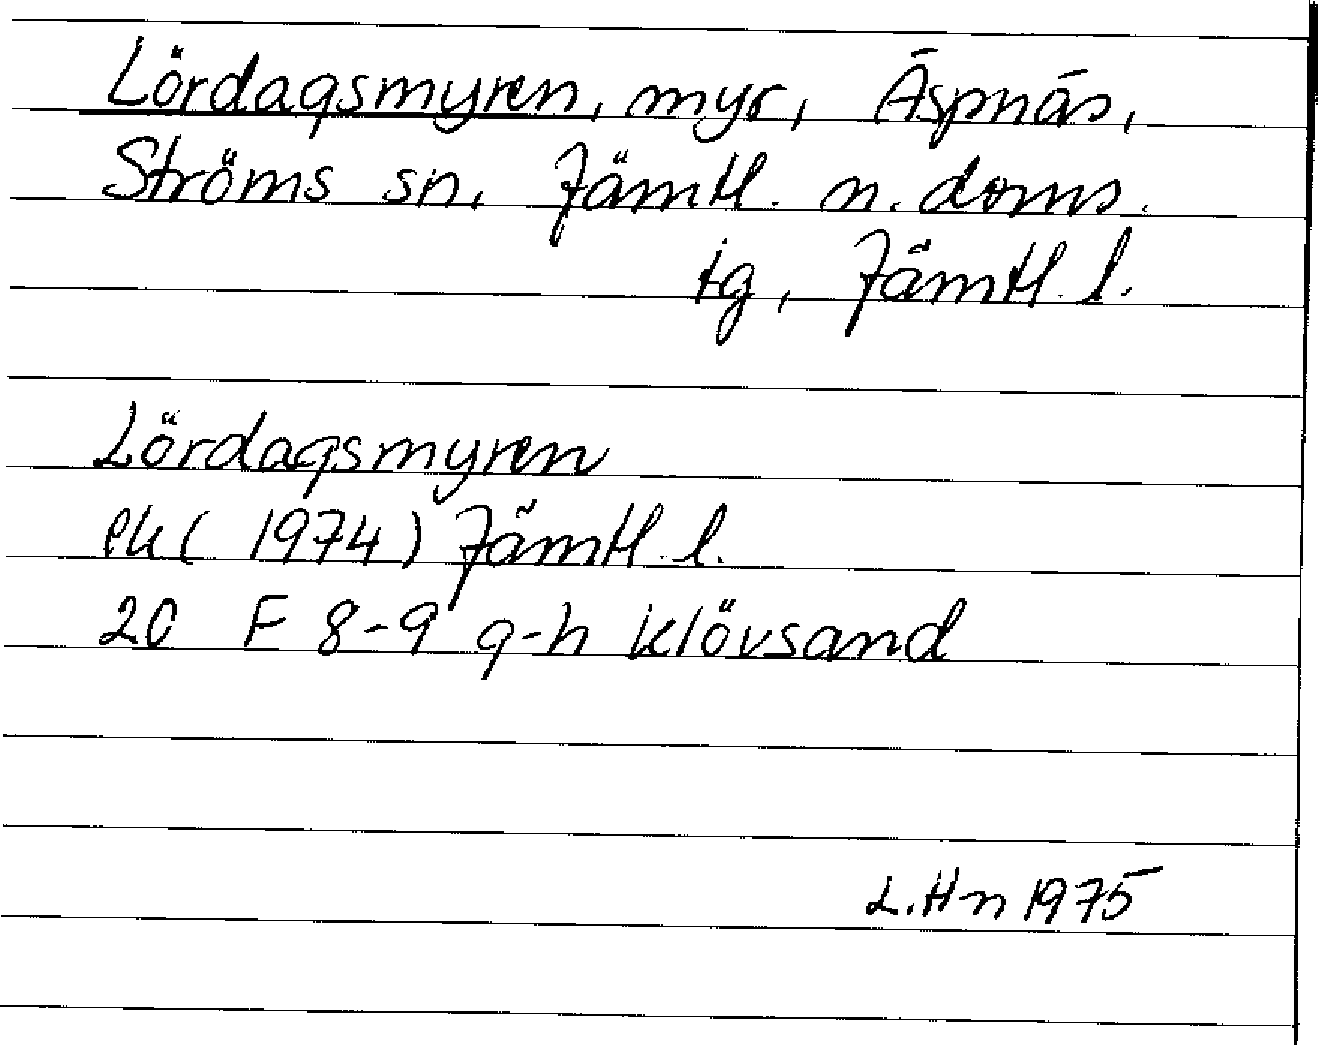 Lördagsmyren, myr, Äspnäs,
Ströms sn, Jämtl. n. doms.
tg, Jämtl. l.
Lördagsmyren
ek (1974) Jämtl. l.
20 F 8-9 g-h Klövsand
L.Hn 1975